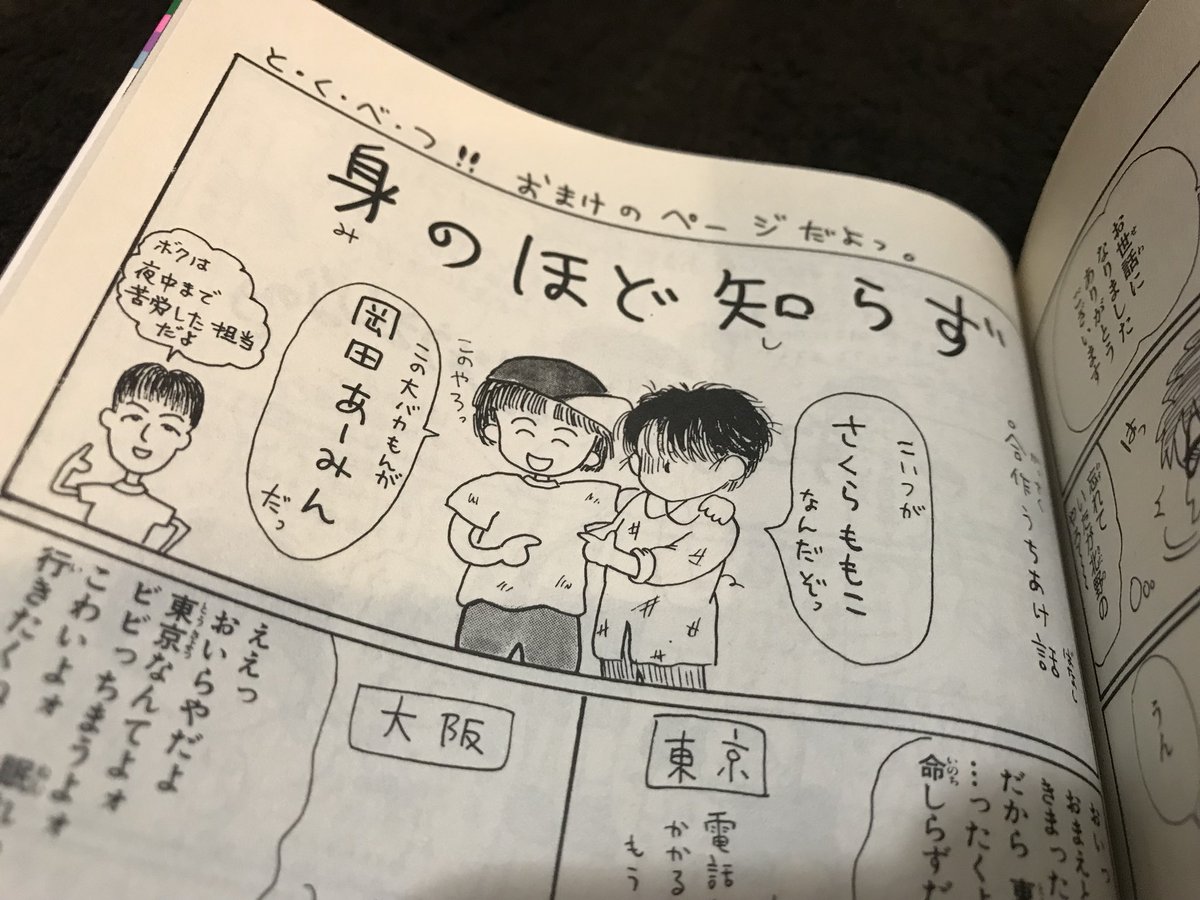 と・く・べ・つ!! おまけのページだよっ。
身のほど知らず
み
し
合作うちあけ話
こいつが
さくらももこ
なんだぞっ
このやろ
この大バカもんが
岡田あーみん
だっ
ボクは
夜中まで
苦労した担当
だよ
おいっ
おまえと
きまった
だから 東
…ったくよ
命しらずだ
いのち
東京
電話
かかる
もう
大阪
ええっ
おいらやだよ
東京なんてよォ
とうきょう
ビビっちまうよォ
こわいよォ
行きたく
い
眠れ
お世話に
なりました
ありがとう
ございます
はっ
忘れて
うん